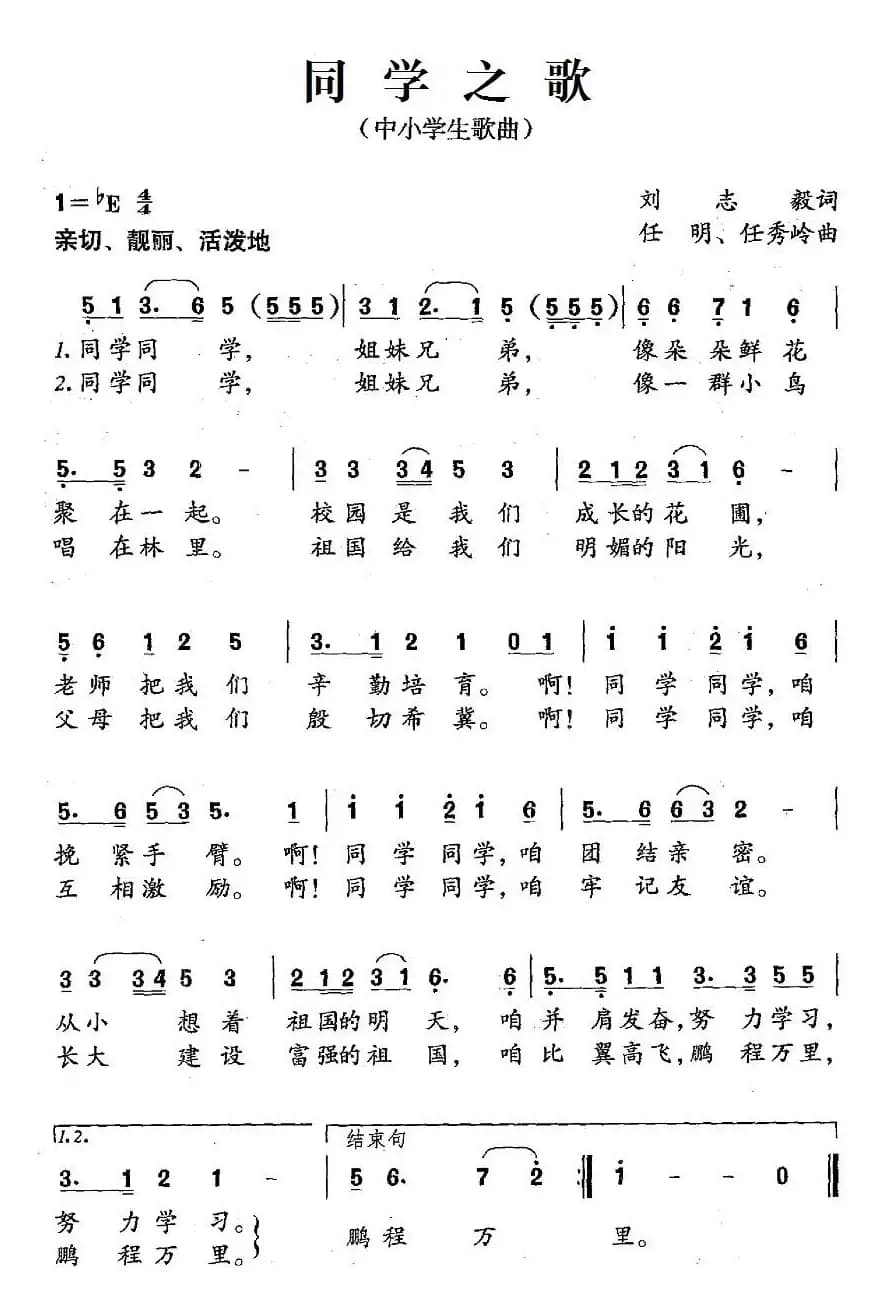 同学之歌
（中小学生歌曲）
1=♭E 4/4
刘志毅词
亲切、靓丽、活泼地
任明、任秀岭曲
5 1 3. 6 5 (5 5 5) | 3 1 2. 1 5 (5 5 5) | 6 6 7 1 6 |
1.同学同学，姐妹兄弟，像朵朵鲜花
2.同学同学，姐妹兄弟，像一群小鸟
5. 5 3 2 - | 3 3 3 4 5 3 | 2 1 2 3 1 6 - |
聚在一起。校园是我们成长的花圃，
唱在林里。祖国给我们明媚的阳光，
5 6 1 2 5 | 3. 1 2 1 0 1 | i i 2 i 6 |
老师把我们辛勤培育。啊！同学同学，咱
父母把我们殷切希冀。啊！同学同学，咱
5. 6 5 3 5. 1 | i i 2 i 6 | 5. 6 6 3 2 - |
挽紧手臂。啊！同学同学，咱团结亲密。
互相激励。啊！同学同学，咱牢记友谊。
3 3 3 4 5 3 | 2 1 2 3 1 6. 6 | 5. 5 1 1 3. 3 5 5 |
从小想着祖国的明天，咱并肩发奋，努力学习，
长大建设富强的祖国，咱比翼高飞，鹏程万里，
1.2.
结束句
3. 1 2 1 - | 5 6. 7 2 :‖ i - - 0 ‖
努力学习。
鹏程万里。
鹏程万里。